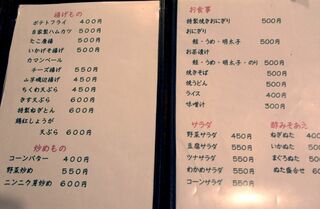 揚げもの
ポテトフライ 400円
自家製ハムカツ 500円
たこ唐揚 500円
いかげそ揚げ 500円
カマンベール
チーズ揚げ 550円
山芋磯辺揚げ 550円
ちくわ天ぷら 450円
きす天ぷら 600円
特製ねぎとん 600円
鶏紅しょうが
天ぷら 600円
炒めもの
コーンバター 400円
野菜炒め 550円
ニンニク芽炒め 600円
お食事
特製焼きおにぎり 500円
おにぎり
鮭・うめ・明太子 500円
お茶漬け
鮭・うめ・明太子・のり 500円
焼きそば 550円
焼うどん 550円
ライス 400円
味噌汁 300円
サラダ
野菜サラダ 450円
豆腐サラダ 550円
ツナサラダ 550円
わかめサラダ 550円
コーンサラダ 550円
酢みそあえ
ねぎぬた 450円
いかぬた 50
まぐろぬた 50
ぬた盛合せ 60